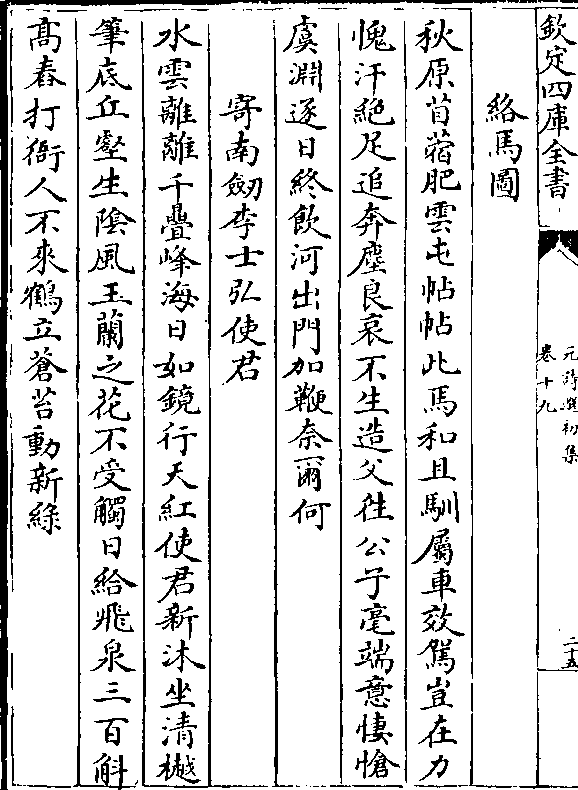 欽定四庫全書
元詩選初集
卷十九
二十五
絡馬圖
秋原苜蓿肥雲屯帖帖此馬和且馴屬車效駕豈在力
愧汗絶足追奔塵良哀不生造父徃公子毫端意悽愴
虞淵逐日終飲河出門加鞭奈爾何
寄南劒李士弘使君
水雲離離千疊峰海日如鏡行天紅使君新沐坐清樾
筆底丘壑生陰風玉蘭之花不受觸日給飛泉三百斛
髙舂打衙人不來鶴立蒼苔動新緑